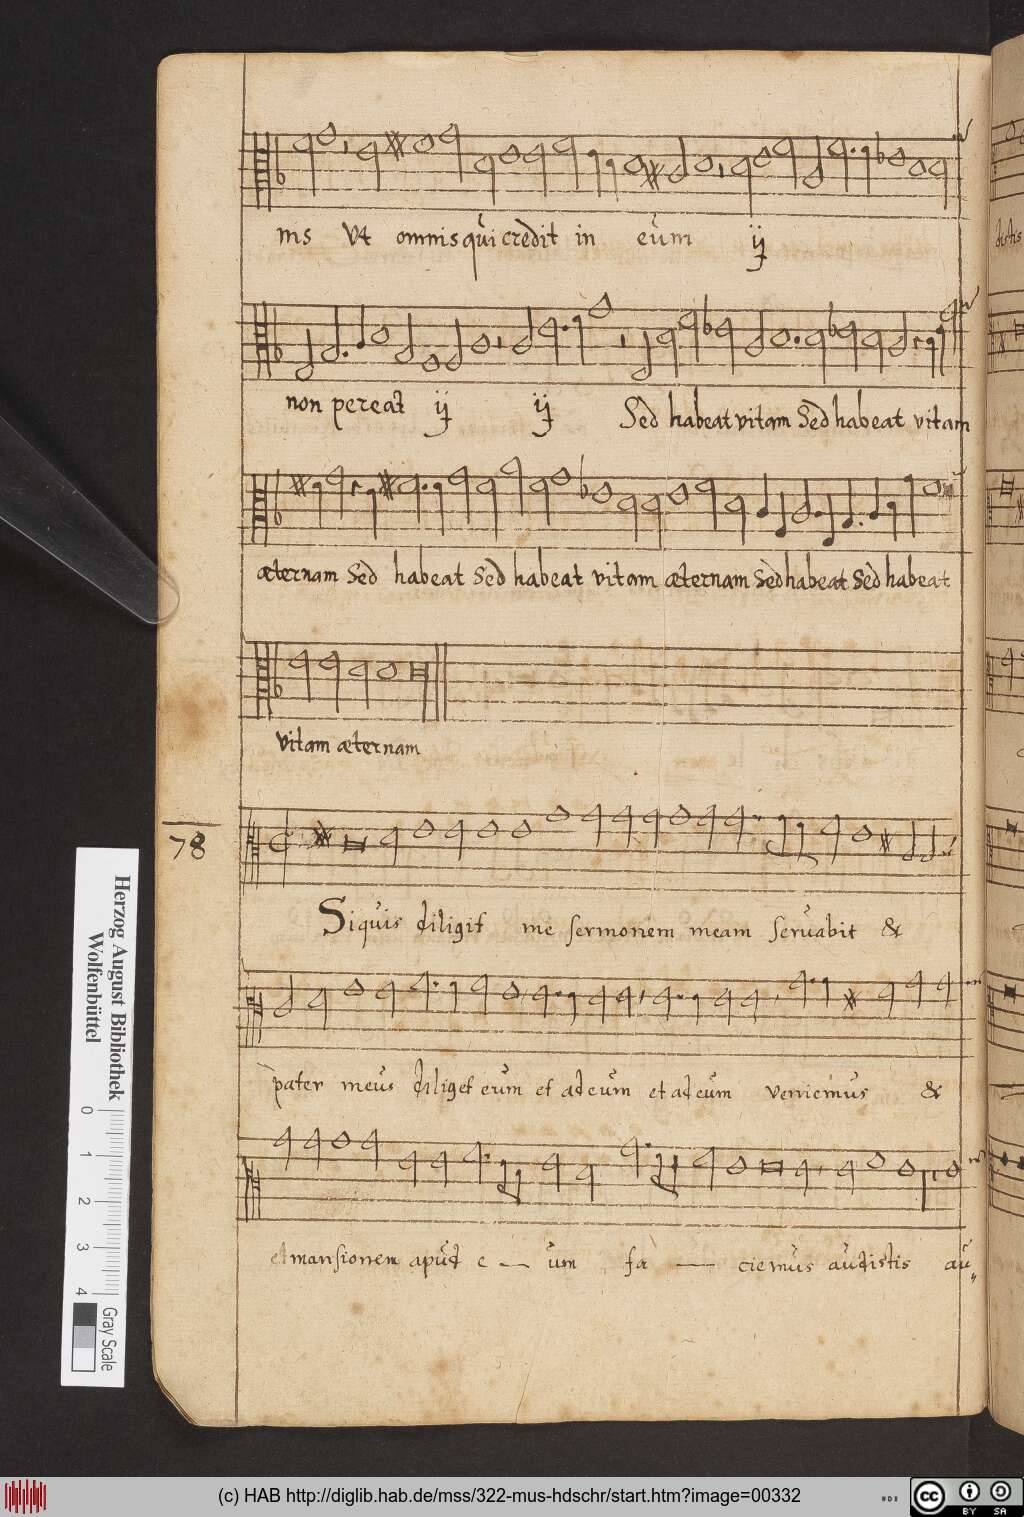 nis Vt omnis qui credit in eum ij
non pereat ij ij Sed habeat vitam Sed habeat vitam
æternam Sed habeat Sed habeat vitam æternam Sed habeat Sed habeat
vitam æternam
78
Siquis diligit me sermonem meam servabit &
pater meus diliget eum et ad eum et ad eum veniemus &
et mansionem apud e — um fa — ciemus audistis au"
Herzog August Bibliothek
Wolfenbüttel
0 1 2 3 4
Gray Scale
(c) HAB http://diglib.hab.de/mss/322-mus-hdschr/start.htm?image=00332
cc BY SA